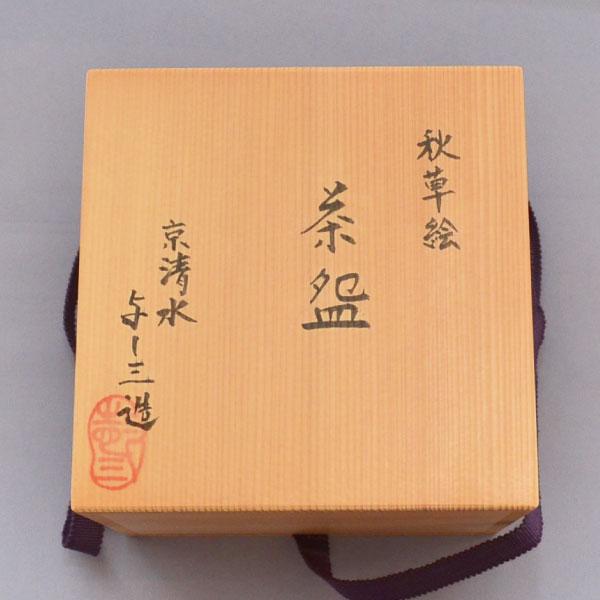 秋草絵
茶盌
京清水
与し三造